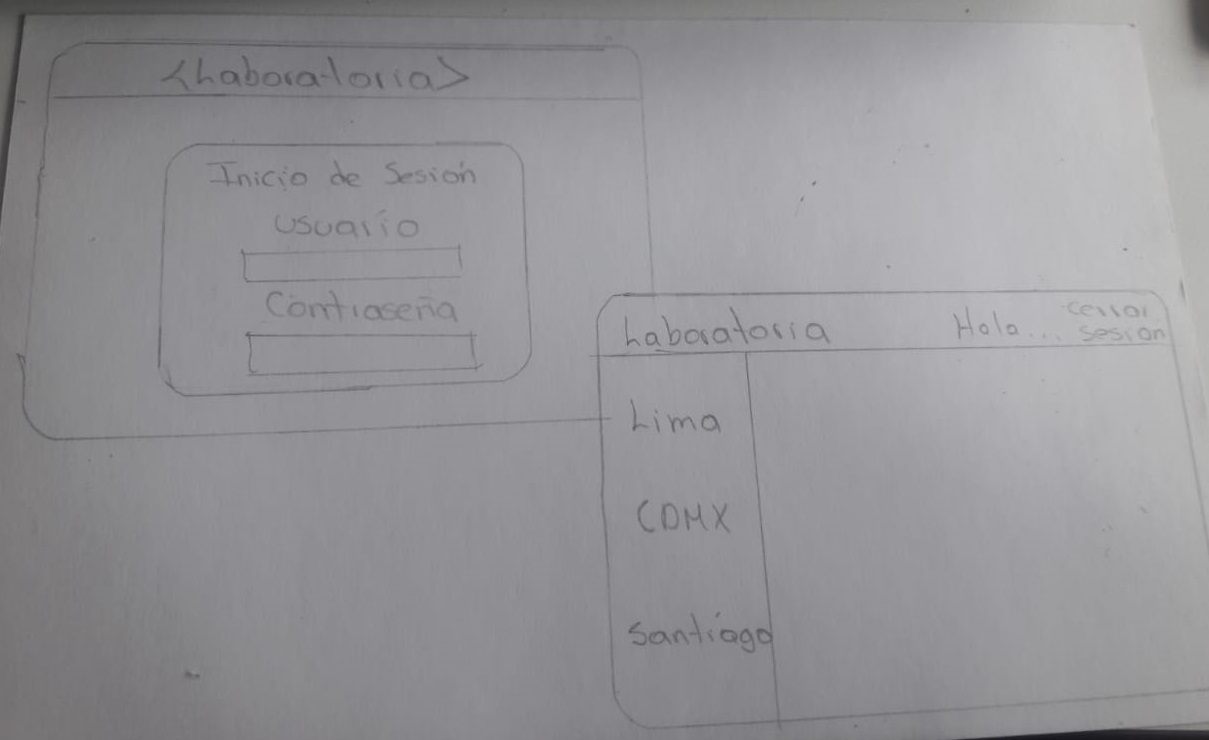 <Laboratoria>
Inicio de Sesión
Usuario
Contraseña
Laboratoria Hola... cerrar sesion
Lima
CDMX
Santiago